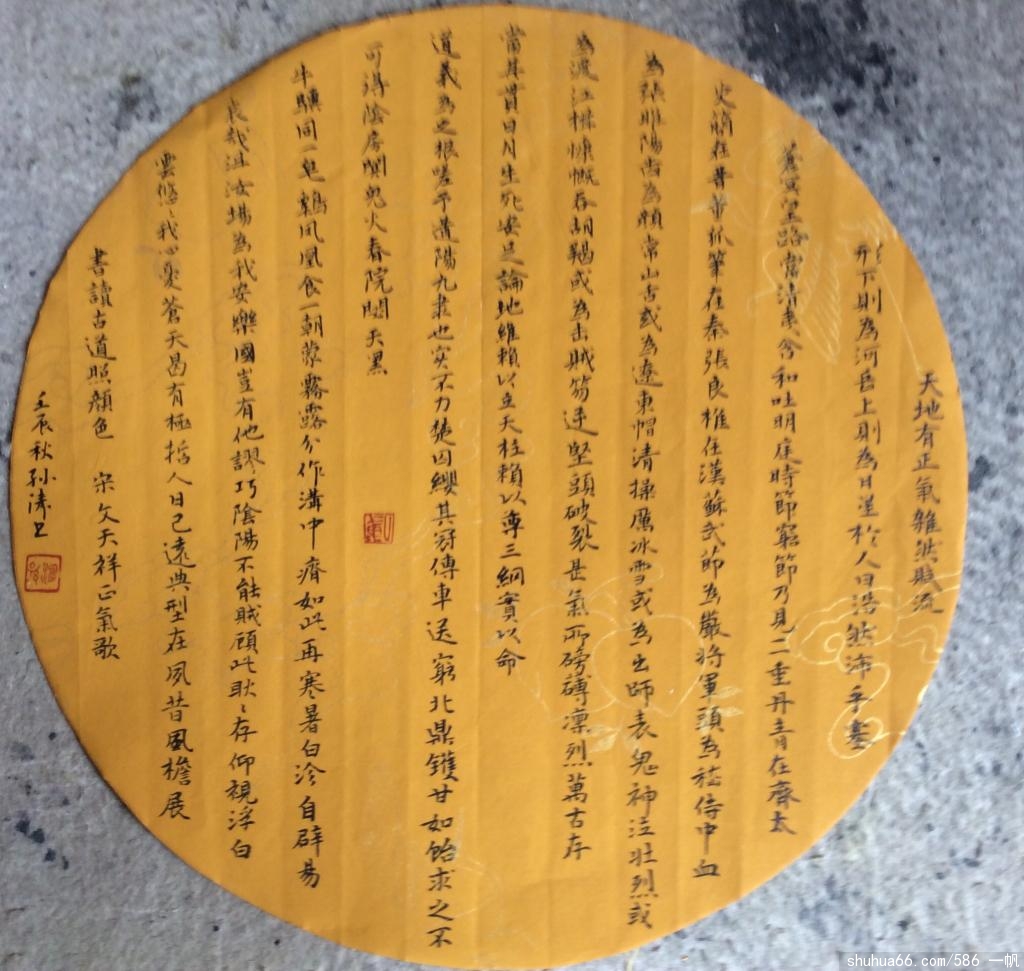 天地有正氣雜然賦流
形下則為河岳上則為日星於人曰浩然沛乎塞
蒼冥皇路當清夷含和吐明庭時節窮節乃見一一垂丹青在齊太
史簡在晉董狐筆在秦張良椎在漢蘇武節為嚴將軍頭為嵇侍中血
為張睢陽齒為顏常山舌或為遼東帽清操厲冰雪或為出師表鬼神泣壯烈或
為渡江楫慷慨吞胡羯或為击賊笏逆堅頭破裂是氣所磅礴凛烈萬古存
當其貫日月生死安足論地維賴以立天柱賴以尊三綱實以命
道義為之根嗟予遘陽九隶也实不力楚囚纓其冠傳車送窮北鼎鑊甘如飴求之不
可得陰房闃鬼火春院閟天黑
牛驥同一皂鷄凤凰食一朝蒙霧露分作溝中瘠如此再寒暑白沴自辟易
哀哉沮汝場為我安樂國豈有他謬巧陰陽不能賊顾此耿々存仰視浮白
雲悠々我心憂蒼天曷有極哲人日已遠典型在夙昔風檐展
書讀古道照顏色 宋文天祥正氣歌
壬辰秋孙涛书
shuhua66.com/586 一帆